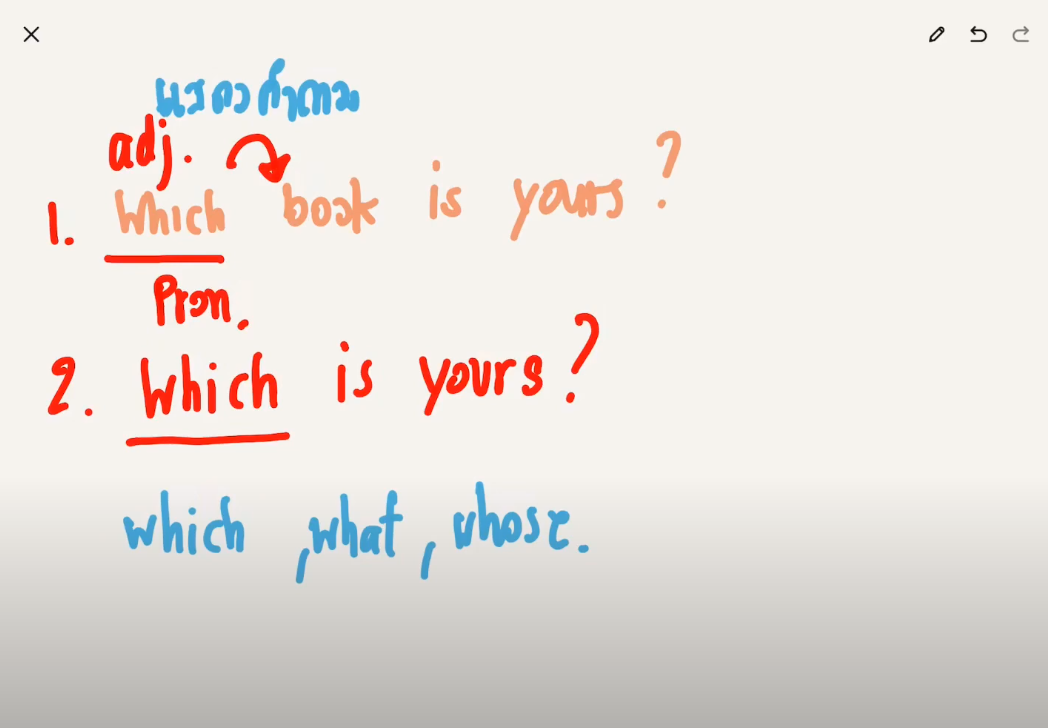 แสดงคำถาม
adj.
1. Which book is yours?
Pron.
2. Which is yours?
which, what, whose.